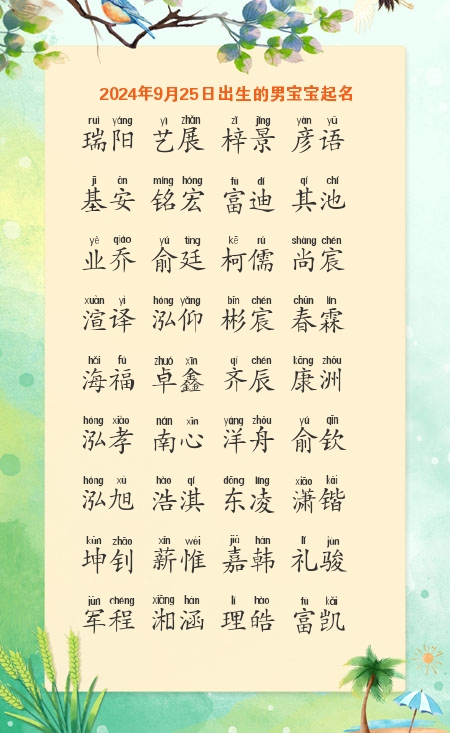 2024年9月25日出生的男宝宝起名
ruì yáng yì zhǎn zǐ jǐng yàn yǔ
瑞阳 艺展 梓景 彦语
jī ān míng hóng fù dí qí chí
基安 铭宏 富迪 其池
yè qiáo yú tíng kē rú shàng chén
业乔 俞廷 柯儒 尚宸
xuān yì hóng yǎng bīn chén chūn lín
渲译 泓仰 彬宸 春霖
hǎi fú zhuó xīn qí chén kāng zhōu
海福 卓鑫 齐辰 康洲
hóng xiào nán xīn yáng zhōu yú qīn
泓孝 南心 洋舟 俞钦
hóng xù hào qí dōng líng xiāo kǎi
泓旭 浩淇 东凌 潇锴
kūn zhāo xīn wéi jiā hán lǐ jùn
坤钊 薪惟 嘉韩 礼骏
jūn chéng xiāng hán lǐ hào fù kǎi
军程 湘涵 理皓 富凯